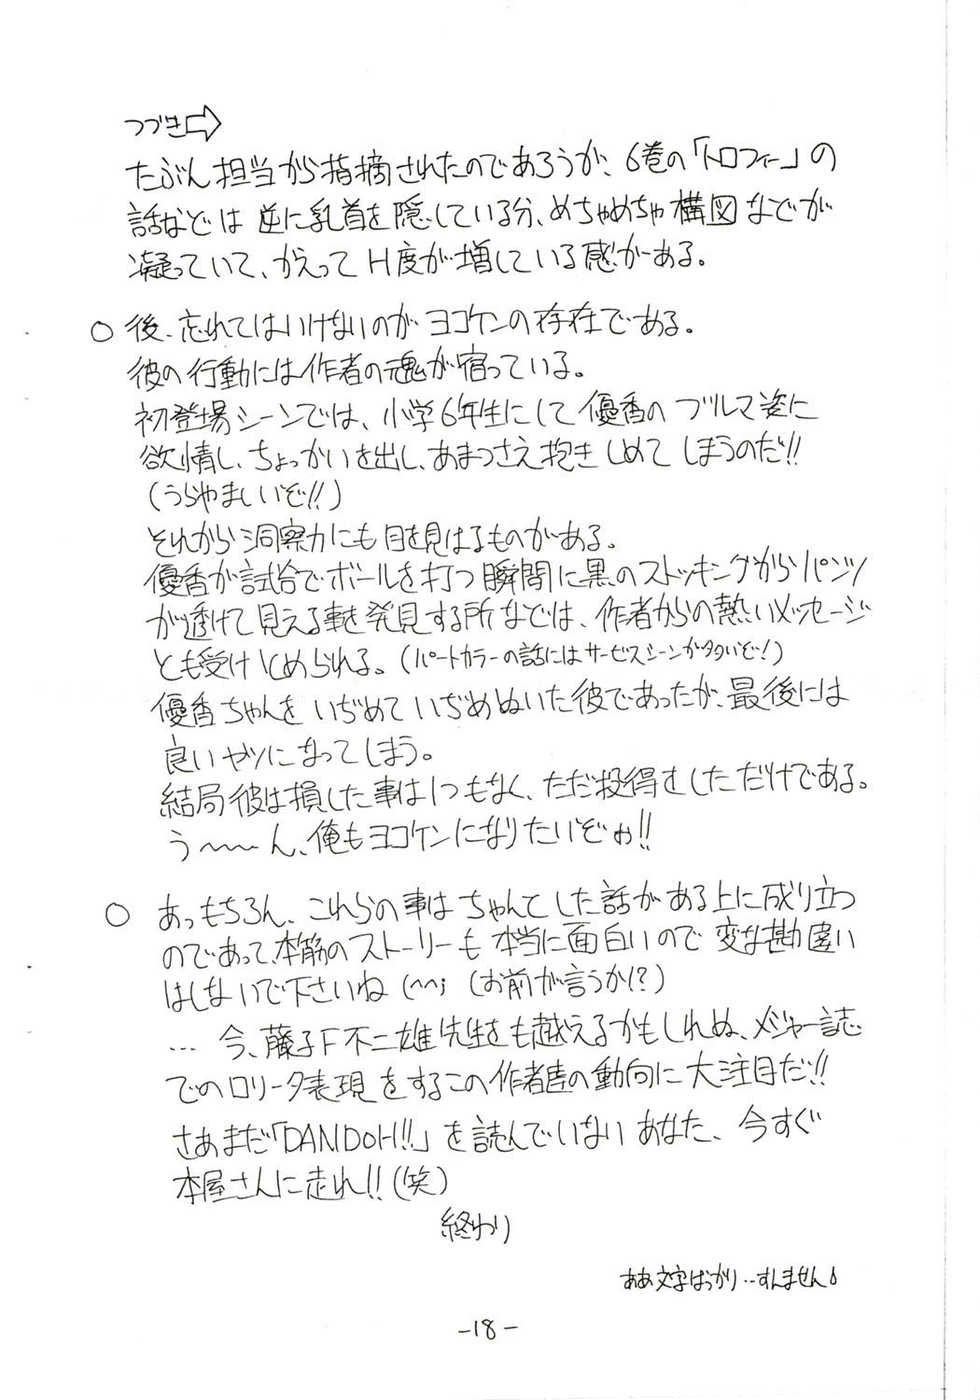 つづき⇨
たぶん担当から指摘されたのであろうが、6巻の「トロフィー」の
話などは 逆に乳首を隠している分、めちゃめちゃ構図などが
凝っていて、かえってH度が増している感がある。
○ 後、忘れてはいけないのがヨコケンの存在である。
彼の行動には作者の魂が宿っている。
初登場シーンでは、小学6年生にして優香のブルマ姿に
欲情し、ちょっかいを出し、あまつさえ抱きしめてしまうのだ!!
(うらやましいぞ!!)
それから洞察力にも目を見はるものがある。
優香が試合でボールを打つ瞬間に黒のストッキングからパンツ
が透けて見える事を発見する所などは、作者からの熱いメッセージ
とも受けとめられる。(パートカラーの話にはサービスシーンが多いぞ!)
優香ちゃんをいぢめていぢめぬいた彼であったが、最後には
良いヤツになってしまう。
結局彼は損した事は1つもなく、ただ役得をしただけである。
う〜〜ん、俺もヨコケンになりたいぞぉ!!
○ あっもちろん、これらの事はちゃんとした話がある上に成り立つ
のであって、本筋のストーリーも本当に面白いので変な勘違い
はしないで下さいね (^^; (お前が言うか!?)
… 今、藤子F不二雄先生をも越えるかもしれぬ、メジャー誌
でのロリータ表現をするこの作者達の動向に大注目だ!!
さあまだ「DANDOH!!」を読んでいないあなた、今すぐ
本屋さんに走れ!!(笑)
終わり
ああ文字ばっかり…すんません
-18-